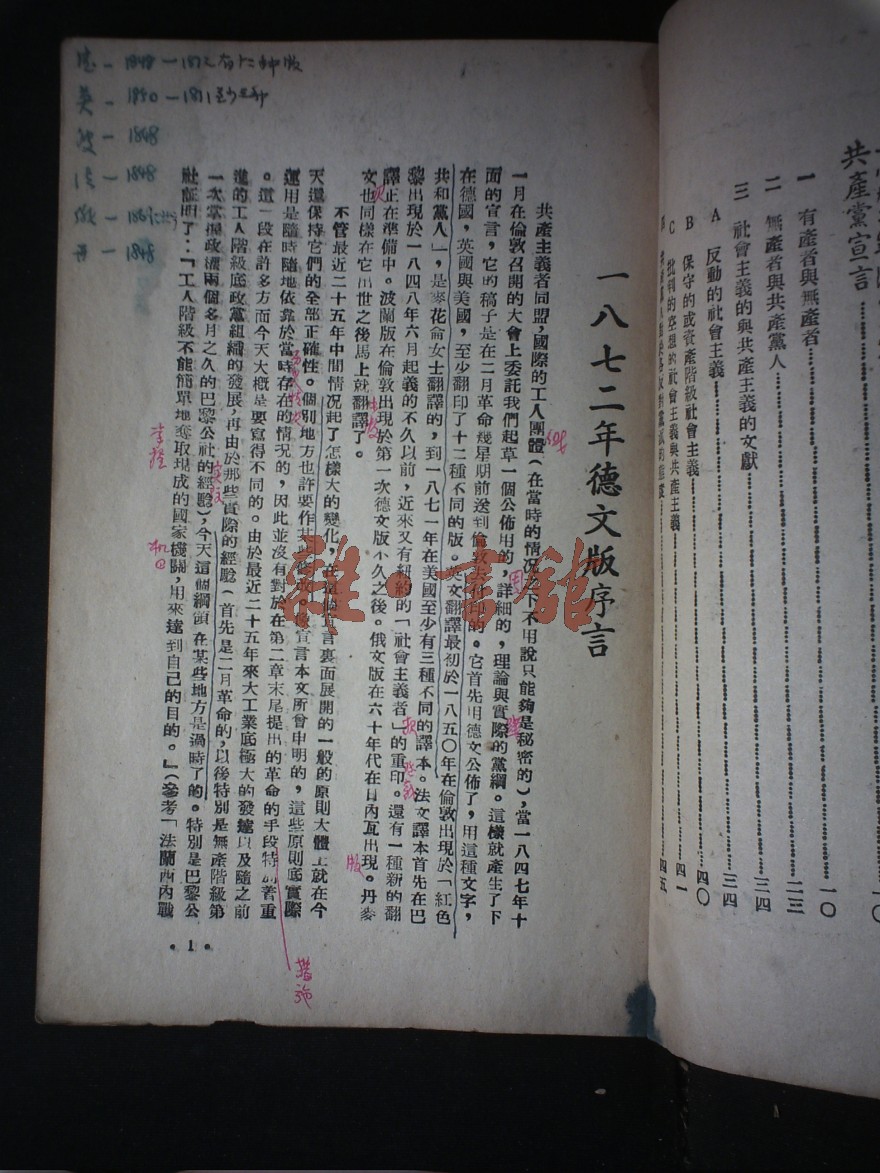 共產黨宣言……１０
一 有產者與無產者……１０
二 無產者與共產黨人……二三
三 社會主義的與共產主義的文獻……三四
A 反動的社會主義……三四
B 保守的或資產階級社會主義……四〇
C 批判的空想的社會主義與共產主義……四一
四五
一八七二年德文版序言
共產主義者同盟，國際的工人團體（在當時的情况之下不用說只能夠是秘密的），當一八四七年十
一月在倫敦召開的大會上委託我們起草一個公佈用的，詳細的，理論與實際的黨綱。這樣就產生了下
面的宣言，它的稿子是在二月革命幾星期前送到倫敦去付印的。它首先用德文公佈了，用這種文字，
在德國，英國與美國，至少翻印了十二種不同的版。英文翻譯最初於一八五〇年在倫敦出現於「紅色
共和黨人」，是麥花侖女士翻譯的，到一八七一年在美國至少有三種不同的譯本。法文譯本首先在巴
黎出現於一八四八年六月起義的不久以前，近來又有紐約的「社會主義者」的重印。還有一種新的翻
譯正在準備中。波蘭版在倫敦出現於第一次德文版不久之後。俄文版在六十年代在日內瓦出現。丹麥
文也同樣在它出世之後馬上就翻譯了。
不管最近二十五年中間情况起了怎樣大的變化，在這個宣言裏面展開的一般的原則大體上就在今
天還保持它們的全部正確性。個別地方也許要作某些修改。像宣言本文所曾申明的，這些原則底實際
運用是隨時隨地依靠於當時存在的情况的，因此並沒有對於在第二章末尾提出的革命的手段特別着重
。這一段在許多方面今天大概是要寫得不同的。由於最近二十五年來大工業底極大的發達以及隨之前
進的工人階級底政黨組織的發展，再由於那些實際的經驗（首先是二月革命的，以後特別是無產階級第
一次掌握政權兩個多月之久的巴黎公社的經驗），今天這個綱領在某些地方是過時了的。特別是巴黎公
社証明了：「工人階級不能簡單地奪取現成的國家機關，用來達到自己的目的。」（參考「法蘭西內戰
•1•
德－1848－1872有十二种版
英－1850－1871至少三种
波－1848
法－1848
俄－186
丹－1848
掌握
措施
版
雜·書館